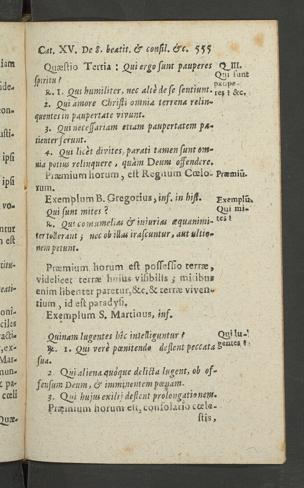 Cat. XV. De 8. beatit. & consil. &c. 555
Quæstio Tertia : Qui ergo sunt pauperes
spiritu ?
R. 1. Qui humiliter, nec altè de se sentiunt.
2. Qui amore Christi omnia terrena relin-
quentes in paupertate vivunt.
3. Qui necessariam etiam paupertatem pa-
tienter ferunt.
4. Qui licèt divites, parati tamen sunt om-
nia potius relinquere, quàm Deum offendere.
Præmium horum, est Regnum Cœlo-
rum.
Exemplum B. Gregorius, inf. in hist.
Qui sunt mites ?
R. Qui contumelias & iniurias æquanimi-
ter tolerant ; nec ob illas irascuntur, aut ultio-
nem petunt.
Præmium horum est possessio terræ,
videlicet terræ huius visibilis ; mitibus
enim libenter paretur, &c. & terræ viven-
tium, id est paradysi.
Exemplum S. Martinus, inf.
Quinam lugentes hîc intelliguntur ?
R. 1. Qui verè pœnitendo deflent peccata
sua.
2. Qui aliena quóque delicta lugent, ob of-
fensum Deum, & imminentem pœnam.
3. Qui hujus exilij deflent prolongationem.
Præmium horum est, consolatio cœle-
stis,
Q. III.
Qui sunt
paupe-
res ? &c.
Præmiũ.
Exemplũ.
Qui mi-
tes ?
Qui lu-
gentes ?